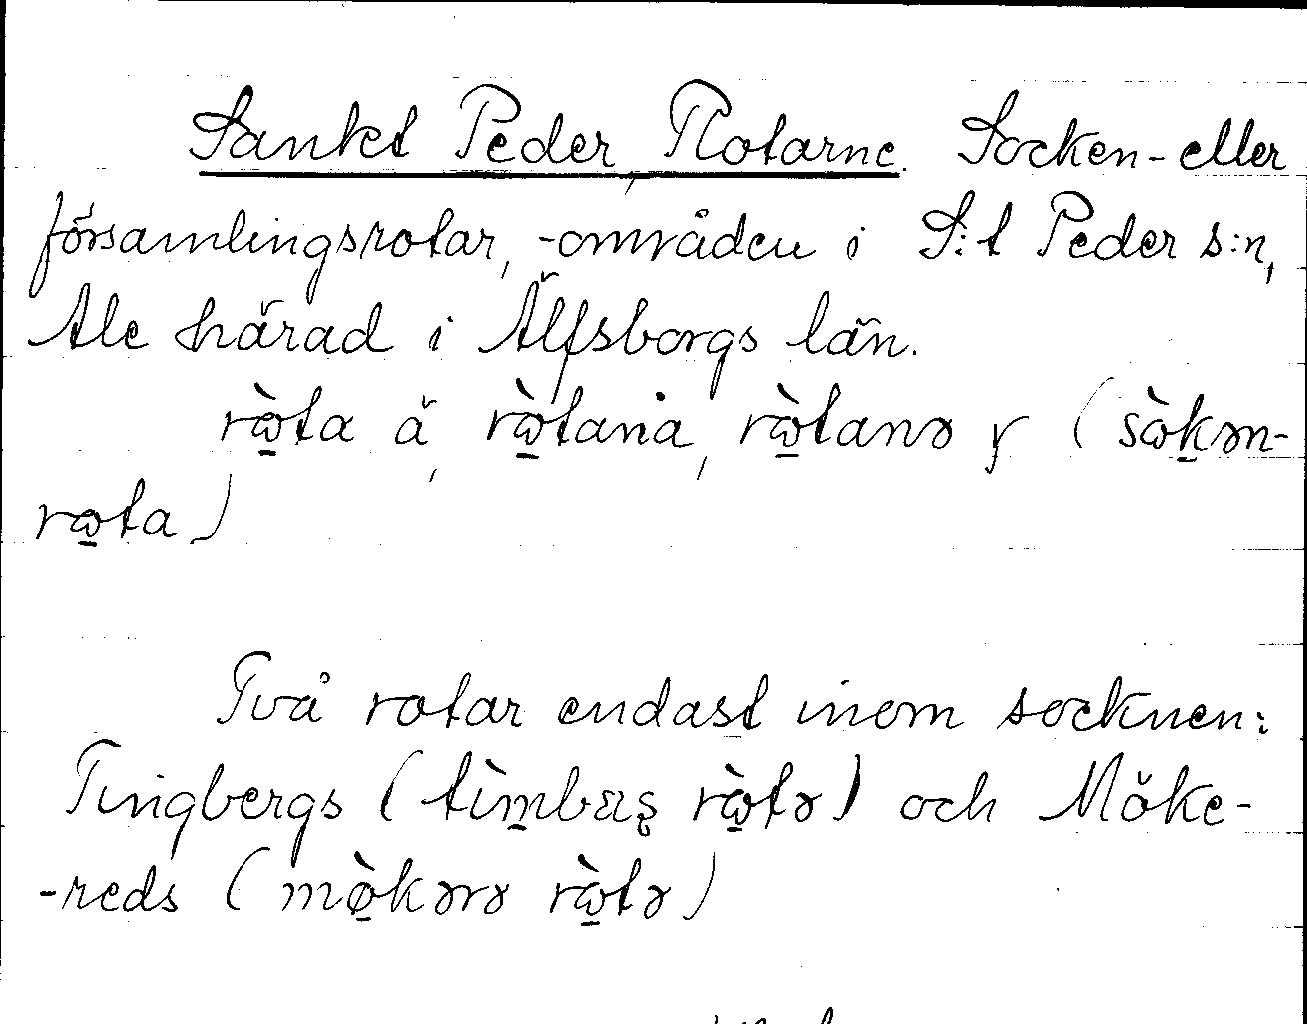 Sankt Peder, Rotarne. Socken- eller
församlingsrotar, -områden i S:t Peder s:n,
Ale härad i Älfsborgs län.
rὼ̱ta å, rὼ̱tana, rὼ̱tanə γ (sὼḵən-
rω̱ta)
Två rotar endast inom socknen:
Tingbergs (tìm̱bæʂ rὼ̱tə) och Möke-
-reds (mø̱̀kərə rὼ̱tə)